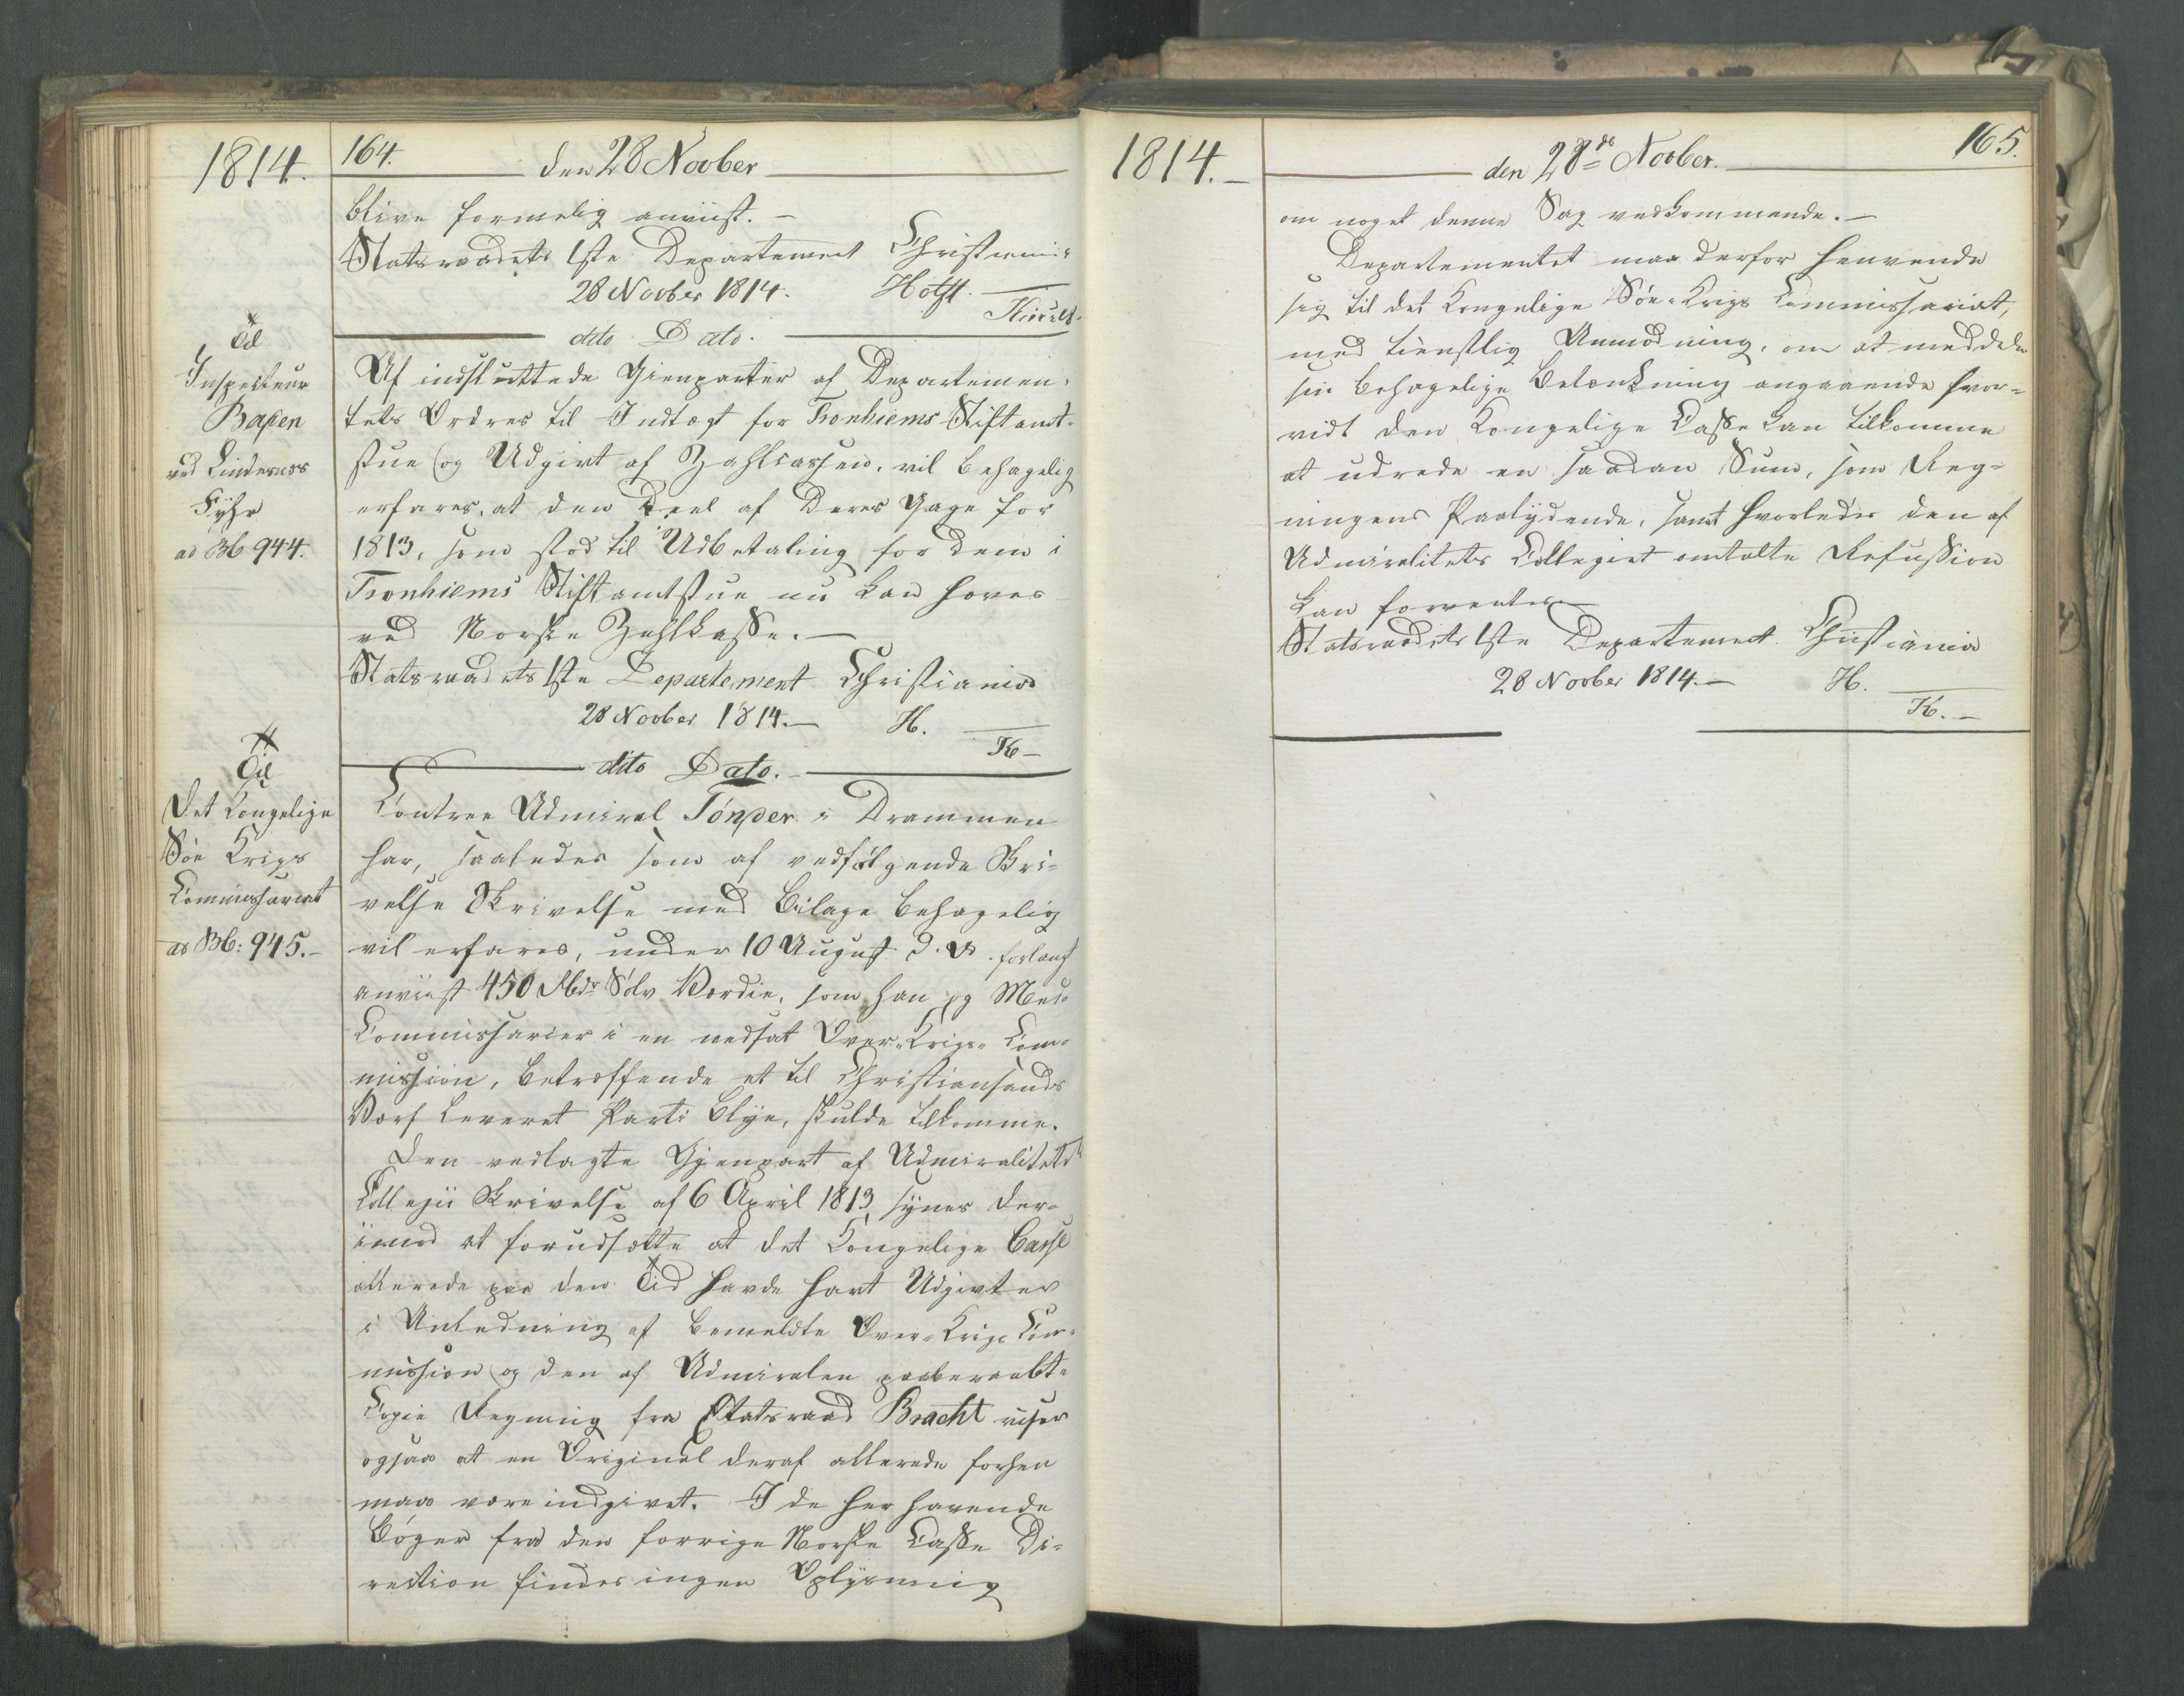 1814.
164.
den 28 Novber
blive formelig anviist. –
Statsraadets 1ste Departement Christiania
28 Novber 1814. Holst.
dito Dato.
Til
Inspecteur
ved Lindesnæs
Fyhr
ad No 944.
Af indsluttede Gienparter af Departemen-
tets Ordres til Indtægt for Tronhiems Stiftamt-
stue og Udgivt af Zahlcassen, vil behagelig
erfares, at den Deel af Deres Gage for
1813, som stod til Udbetaling for dem i
Tronhiems Stiftamtstue nu kan hæves
ved Norske Zahlkasse. –
Statsraadets 1ste Departement Christiania
28 Novber 1814. – H.
K –
dito Dato. –
Til
Det Kongelige
Søe Krigs
Commissariat
ad No: 945. –
Contree Admiral Tønder i Drammen
har, saaledes som af vedfølgende Skri-
velse Skrivelse med Bilage behagelig
vil erfares, under 10 August d. A. forlangt
anviist 450 Rbdr Sølv Værdie, som han og Med-
Commissarier i en nedsat Over-Krigs-Com-
mission, betræffende et til Christiansands
Værf leveret Parti Blye, skulde tilkomme.
Den vedlagte Gjenpart af Admiralitets
Collegii Skrivelse af 6 April 1813, synes der-
imod at forudsætte at det Kongelige Casse
allerede paa den Tid havde havt Udgivter
i Anledning af bemeldte Over-Krigs Com-
mission og den af Admiralen paaberaabte
Copie Regning fra Etatsraad Bracht viser
ogsaa at en Original deraf allerede forhen
maa være indgivet. I de her havende
Bøger fra den forrige Norske Casse Di-
rection findes ingen Oplysning
1814. –
den 28de Novber.
165.
om noget denne Sag vedkommende. –
Departementet maa derfor henvende
sig til det Kongelige Søe-Krigs Commissariat,
med tienstlig Anmodning, om at meddele
sin behagelige Betænkning angaaende hvor-
vidt den Kongelige Casse kan tilkomme
at udrede en saadan Sum, som Reg-
ningens Paalydende, samt hvorledes den af
Admiralitets Collegiet omtalte Refusion
kan forventes –
Statsraadets 1ste Departement Christiania
28 Novber 1814. – H.
K. –